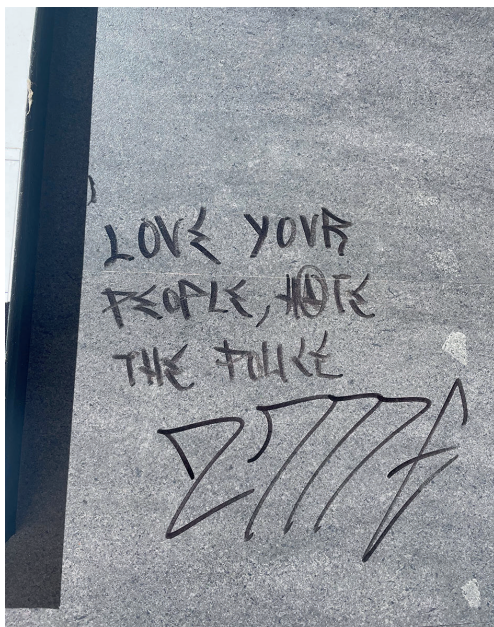 LOVE YOUR
PEOPLE, HATE
THE POLICE